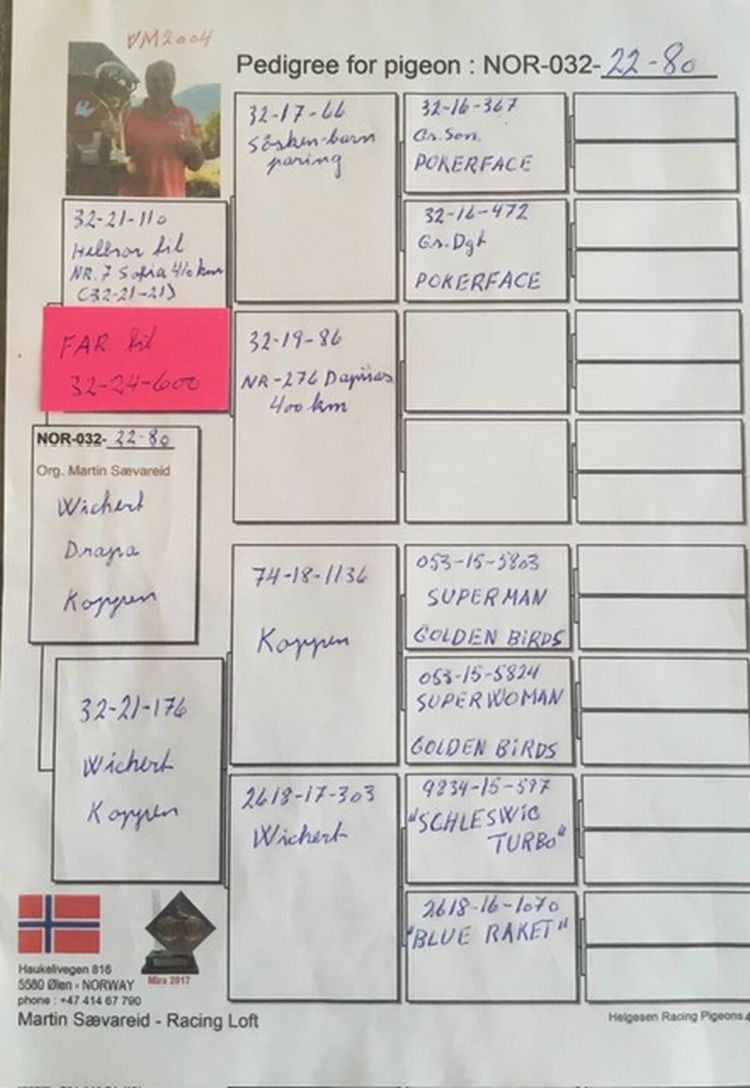 VM2004
Pedigree for pigeon : NOR-032- 22-80
32-21-110
Helbror til
NR. 7 Sofia 410 km
(32-21-21)
FAR til
32-24-600
NOR-032- 22-80
Org. Martin Sævareid
Wichert
Drapa
Koppen
32-21-176
Wichert
Koppen
32-17-66
Søsken-barn
paring
32-19-86
NR-276
400 km
74-18-1136
Koppen
2618-17-303
Wichert
32-16-367
Gr. Son.
POKERFACE
32-16-472
Gr. Dgt
POKERFACE
053-15-5803
SUPERMAN
GOLDEN BIRDS
053-15-5824
SUPERWOMAN
GOLDEN BIRDS
9834-15-597
"SCHLESWIG
TURBO"
2618-16-1070
"BLUE RAKET"
Mira 2017
Haukelivegen 816
5580 Ølen - NORWAY
phone : +47 414 67 790
Martin Sævareid - Racing Loft
Helgesen Racing Pigeons